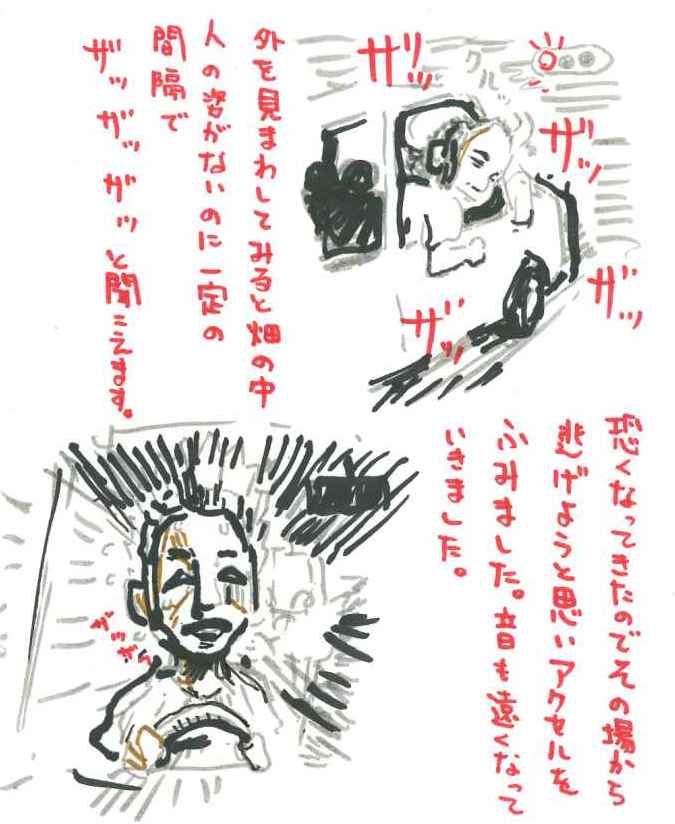 ザッ
クル
ザッ
ザッ
ザッ
外を見まわしてみると畑の中
人の姿がないのに一定の
間隔で
ザッザッザッと聞こえます。
恐くなってきたのでその場から
逃げようと思いアクセルを
ふみました。音も遠くなって
いきました。